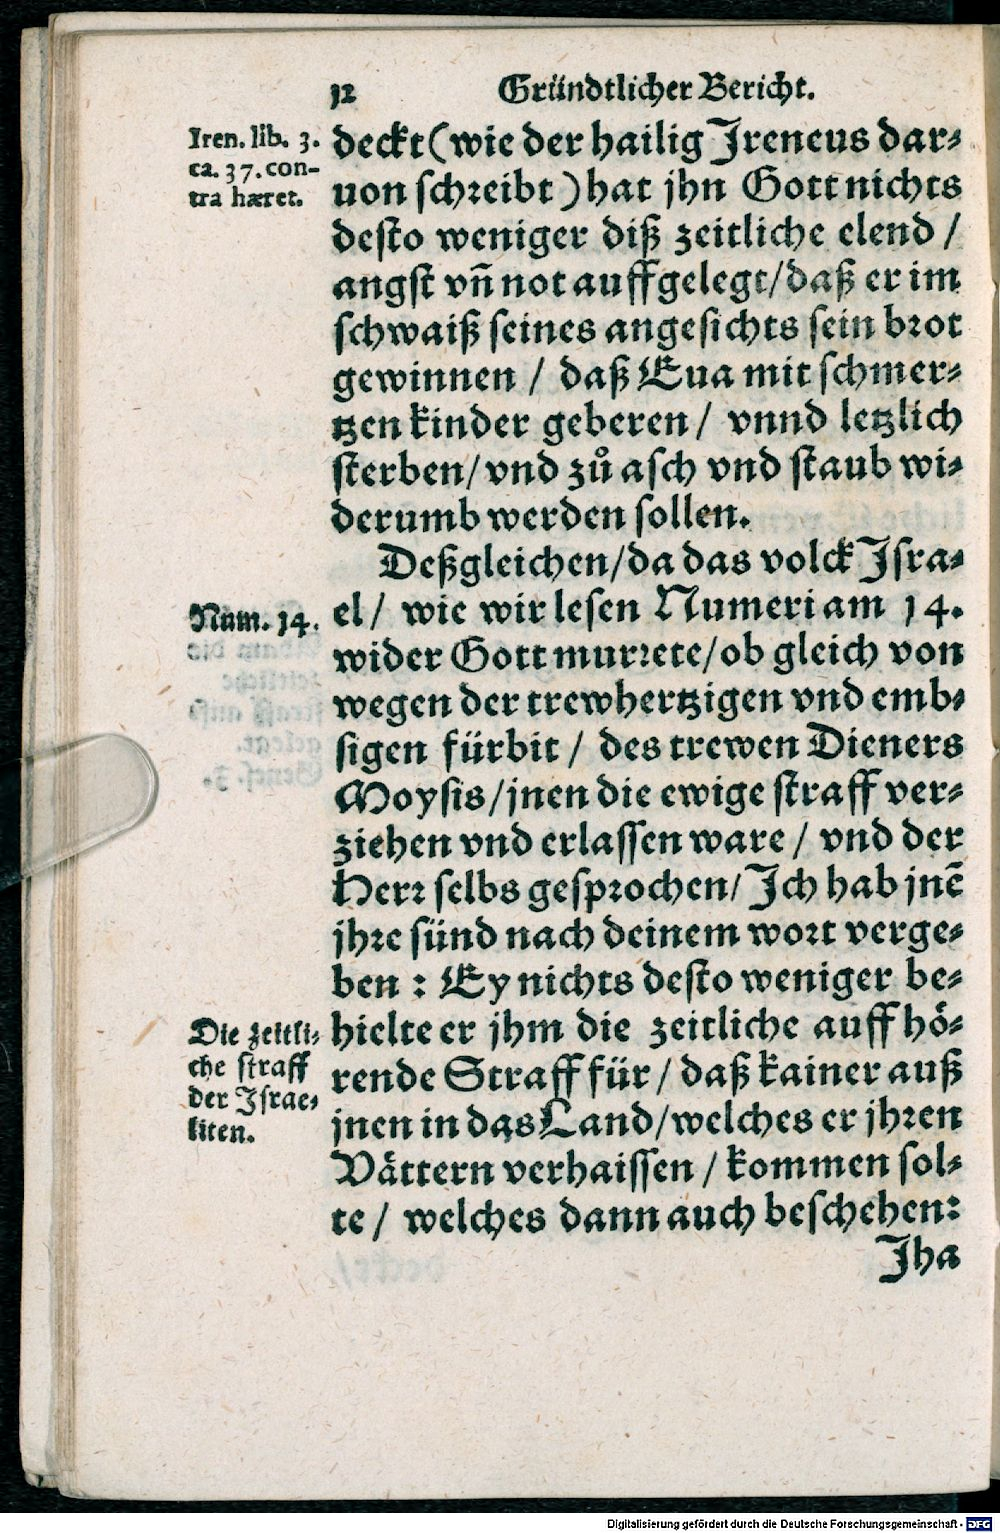 12 Gründtlicher Bericht.
Iren. lib. 3.
ca. 37. con-
tra hæret.
deckt (wie der hailig Ireneus dar-
uon schreibt) hat jhn Gott nichts
desto weniger diß zeitliche elend /
angst vñ not auffgelegt / daß er im
schwaiß seines angesichts sein brot
gewinnen / daß Eua mit schmer-
tzen kinder geberen / vnnd letzlich
sterben / vnd zuͦ asch vnd staub wi-
derumb werden sollen.
Deßgleichen / da das volck Jsra-
Num. 14.
el / wie wir lesen Numeri am 14.
wider Gott murrete / ob gleich von
wegen der trewhertzigen vnd emb-
sigen fürbit / des trewen Dieners
Moysis / jnen die ewige straff ver-
ziehen vnd erlassen ware / vnd der
Herr selbs gesprochen / Jch hab jnẽ
jhre sünd nach deinem wort verge-
ben : Ey nichts desto weniger be-
Die zeitli-
che straff
der Israe-
liten.
hielte er jhm die zeitliche auffhoͤ-
rende Straff für / daß kainer auß
jnen in das Land / welches er jhren
Vaͤttern verhaissen / kommen sol-
te / welches dann auch beschehen:
Jha
Digitalisierung gefördert durch die Deutsche Forschungsgemeinschaft - DFG